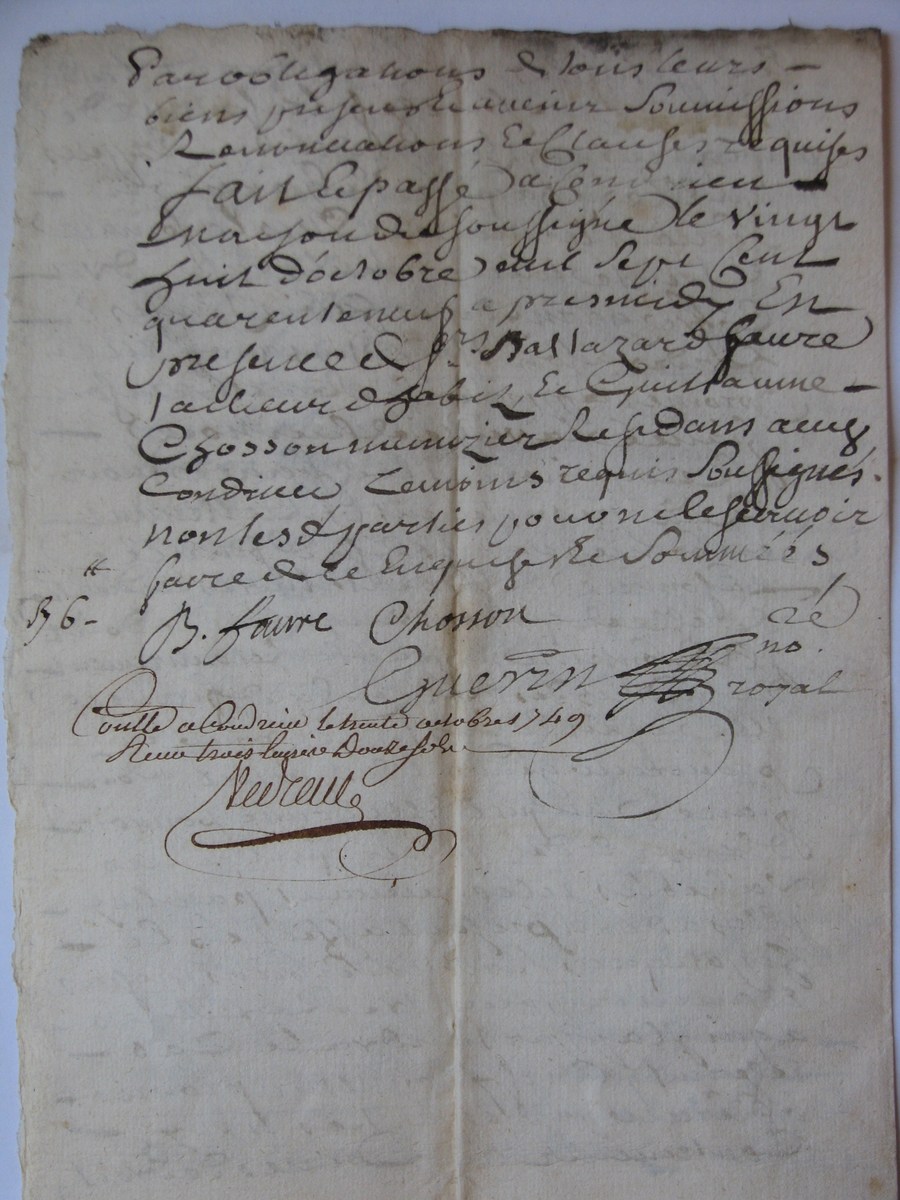 Par obligations de tous leurs -
biens presens et avenir Soumissions
Renonciations Et Clauses requises
fait Et passé a Condrieu
maison du Soussigné le vingt
huit d'octobre mil Sept Cent
quarente neuf apres midy En
presence de Srs Baltazard faure
tailleur d'habit, Et Guillaume -
Chosson menuizier Residans aud
Condrieu temoins requis Soussignés
non lesd parties pour ne le scavoir
faire de ce Enquises Et Sommées
B. faure Chosson
Guerin no. royal
Conllé a Condrieu le trente octobre 1749
Receu trois livres douze sols